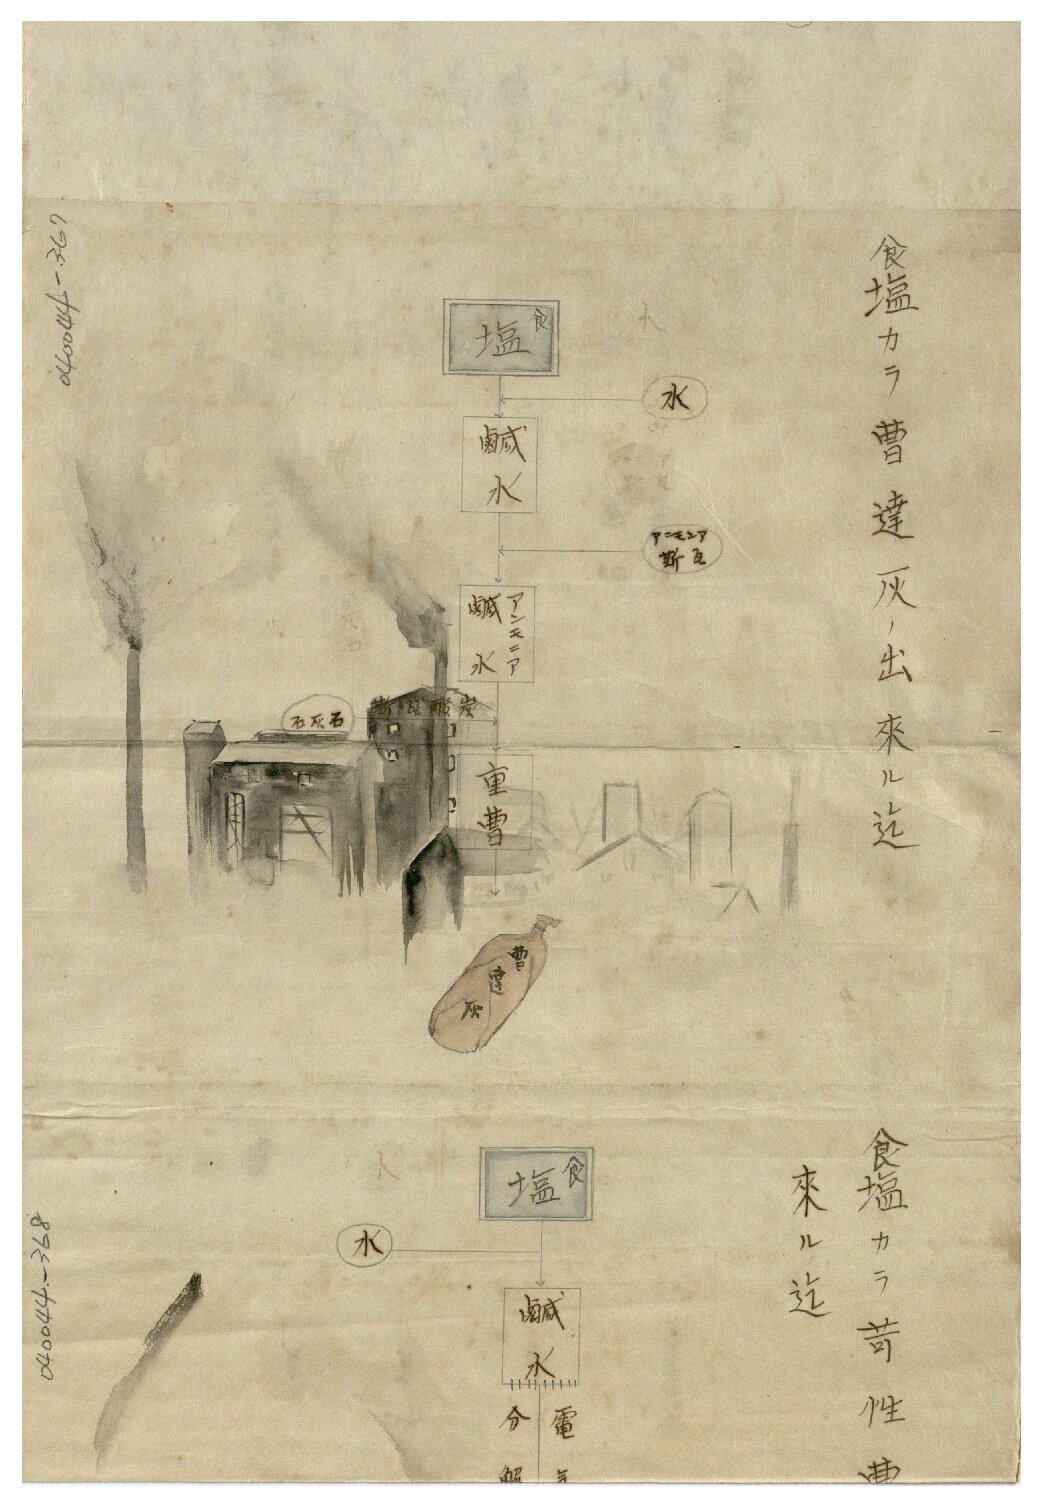 食塩カラ曹達灰ノ出來ル迄
食塩
水
鹹水
アンモニア
斯瓦
アンモニア
鹹水
斯瓦酸炭
石灰石
重曹
曹達灰
食塩カラ苛性曹
來ル迄
食塩
水
鹹水
電気
分解
040044-367
040044-368